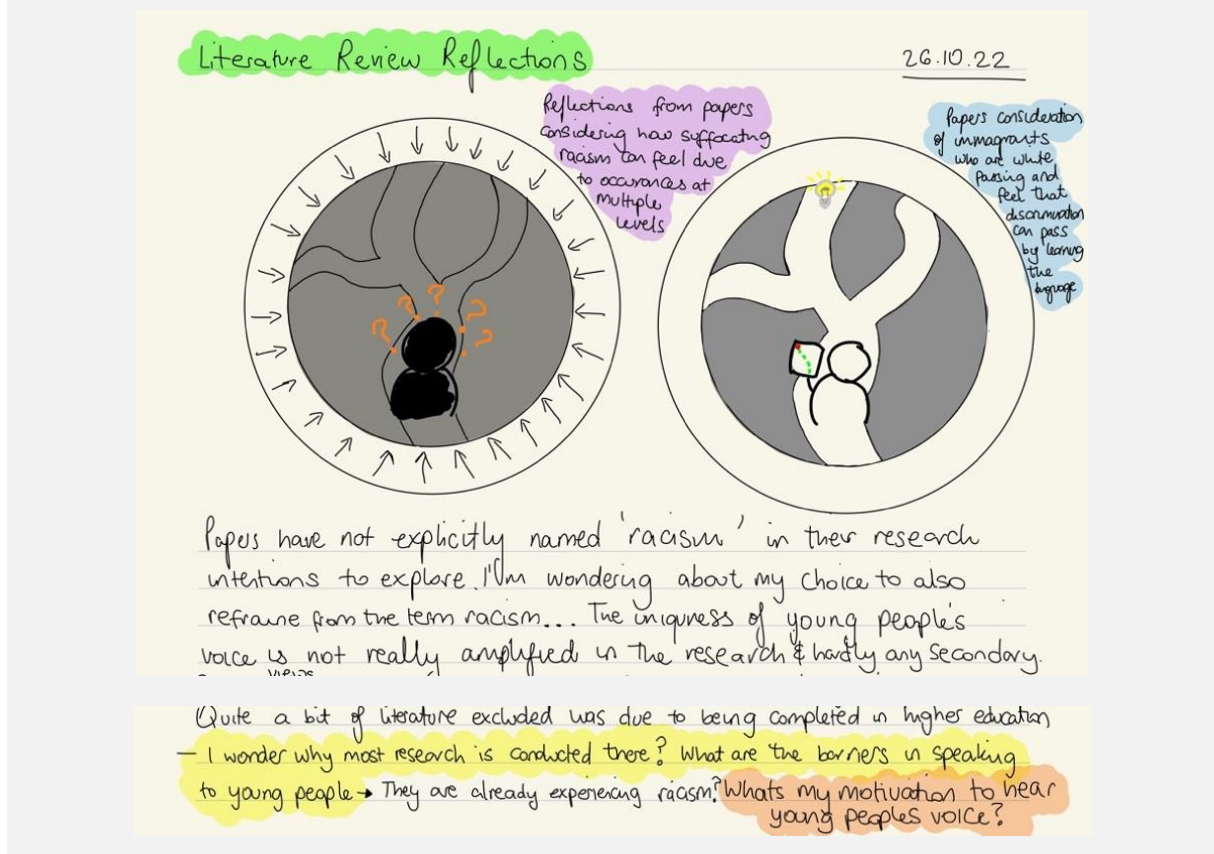 Literature Review Reflections
26.10.22
Reflections from papers
considering how suffocating
racism can feel due
to occurances at
multiple
levels
Papers consideration
of immagrants
who are white
passing and
feel that
discrimination
can pass
by learning
the
language
? ? ? ? ?
Papers have not explicitly named 'racism' in their research
intentions to explore. I'm wondering about my choice to also
refraine from the term racism... The uniquness of young people's
voice is not really amplified in the research & hardly any secondary.
views
Quite a bit of literature excluded was due to being completed in higher education
— I wonder why most research is conducted there? What are the barriers in speaking
to young people → They are already experiencing racism? Whats my motivation to hear
young peoples voice?